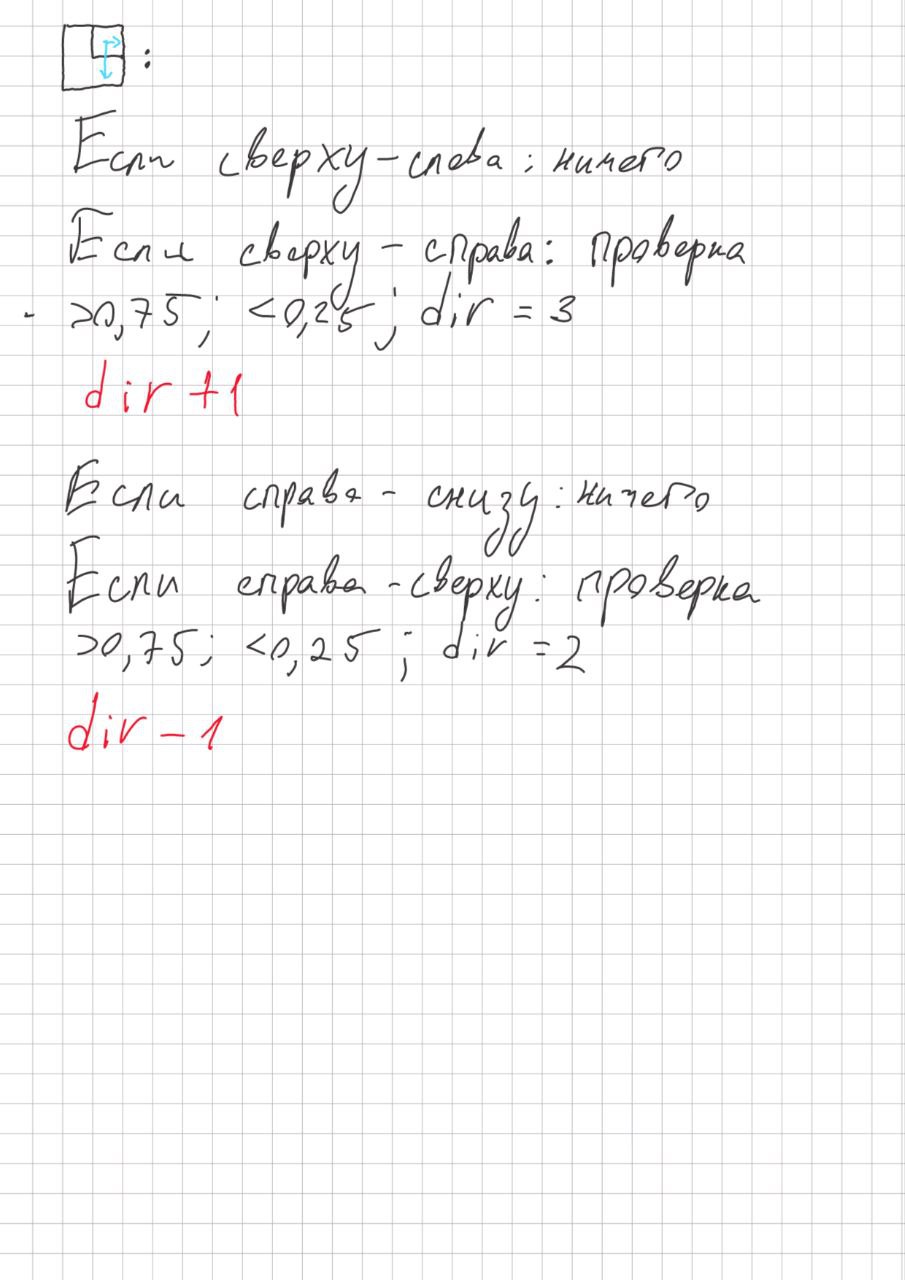 :
Если сверху-слева: ничего
Если сверху - справа: проверка
>0,75; <0,25; dir = 3
dir +1
Если справа - снизу: ничего
Если справа - сверху: проверка
>0,75; <0,25; dir = 2
dir - 1